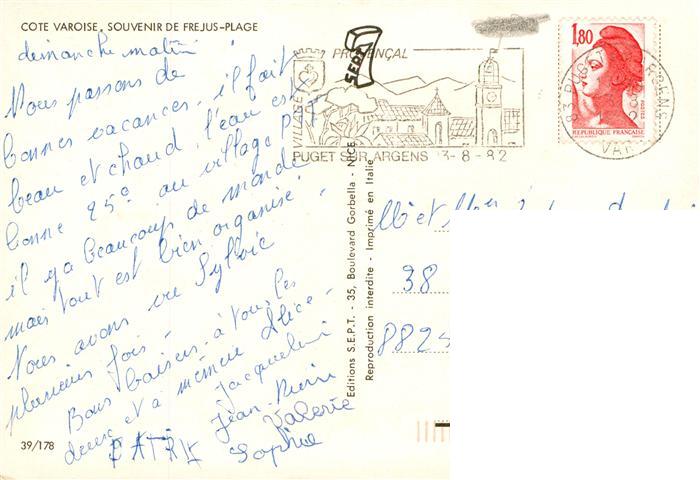 COTE VAROISE, SOUVENIR DE FREJUS-PLAGE
dimanche matin
Nous passons de
bonnes vacances. il fait
beau et chaud l'eau est
bonne 25° au village
il y a beaucoup de monde
mais tout est bien organisé.
Nous avons vu Sylvie
plusieurs fois -
Bons baisers à tous les
deux et à mémée Alice -
Jacqueline
Jean-Pierre
Valerie
PATRIK Sophie
39/178
PROVENÇAL
VILLAGE
PUGET SUR ARGENS 13-8-82
SEPT
1,80
REPUBLIQUE FRANÇAISE
83 PUGET
VAR
Editions S.E.P.T. - 35, Boulevard Gorbella - NICE
Reproduction interdite - Imprimé en Italie
38
8825